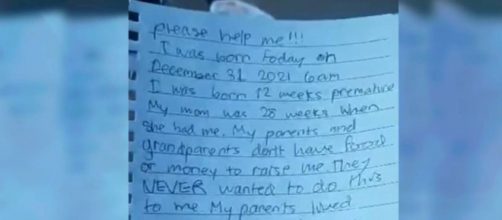 please help me!!!
I was born today on
December 31 2021 6am
I was born 12 weeks premature
My mom was 28 weeks when
she had me. My parents and
grandparents dont have food
or money to raise me They
NEVER wanted to do this
to me My parents lived